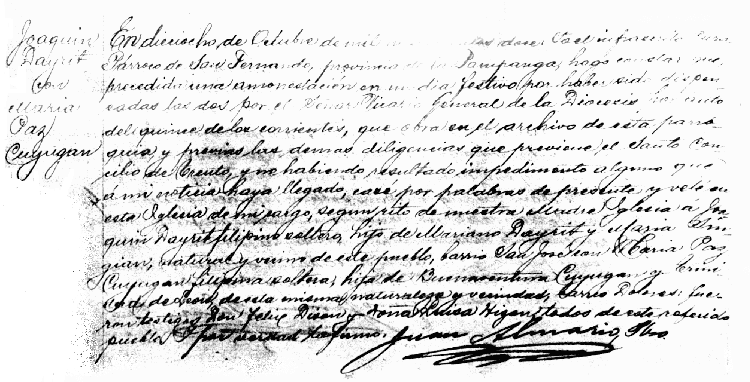 Joaquin
Dayrit
con
Maria
Paz
Cuyugan
En dieciocho de Octubre de mil doce. Yo el infrascrito Cura
Párroco de San Fernando, provincia de la Pampanga, hago constar que
precedida una amonestación en un dia festivo por haber sido dispen-
sadas las dos por el Señor Vicario General de la Diocesis por auto
del quince de los corrientes, que obra en el archivo de esta parro-
quia y previas las demas diligencias que previene el Santo Con-
cilio de Trento, y no habiendo resultado impedimento alguno que
á mi noticia haya llegado, casé por palabras de presente y velé en
esta Iglesia de mi cargo, segun rito de nuestra Madre Iglesia a Joa-
quin Dayrit filipino soltero, hijo de Mariano Dayrit y Maria
natural y vecino de este pueblo, barrio San Jose con Maria Paz
Cuyugan filipina soltera, hija de Buenaventura Cuyugan y
de Leon, de esta misma naturaleza y vecindad, barrio Dolores: fue-
ron testigos Don Felix Dison y Doña Luisa Hizon todos de este referido
pueblo. Y por verdad lo firmo. Juan Almario, Pbro.